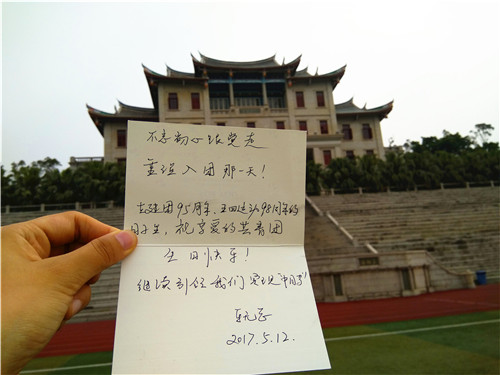 不忘初心跟党走
重温入团那一天!
在建团95周年、五四运动98周年的
日子里,祝亲爱的共青团
生日快乐!
继续引领我们实现“中国梦”
2017.5.12.